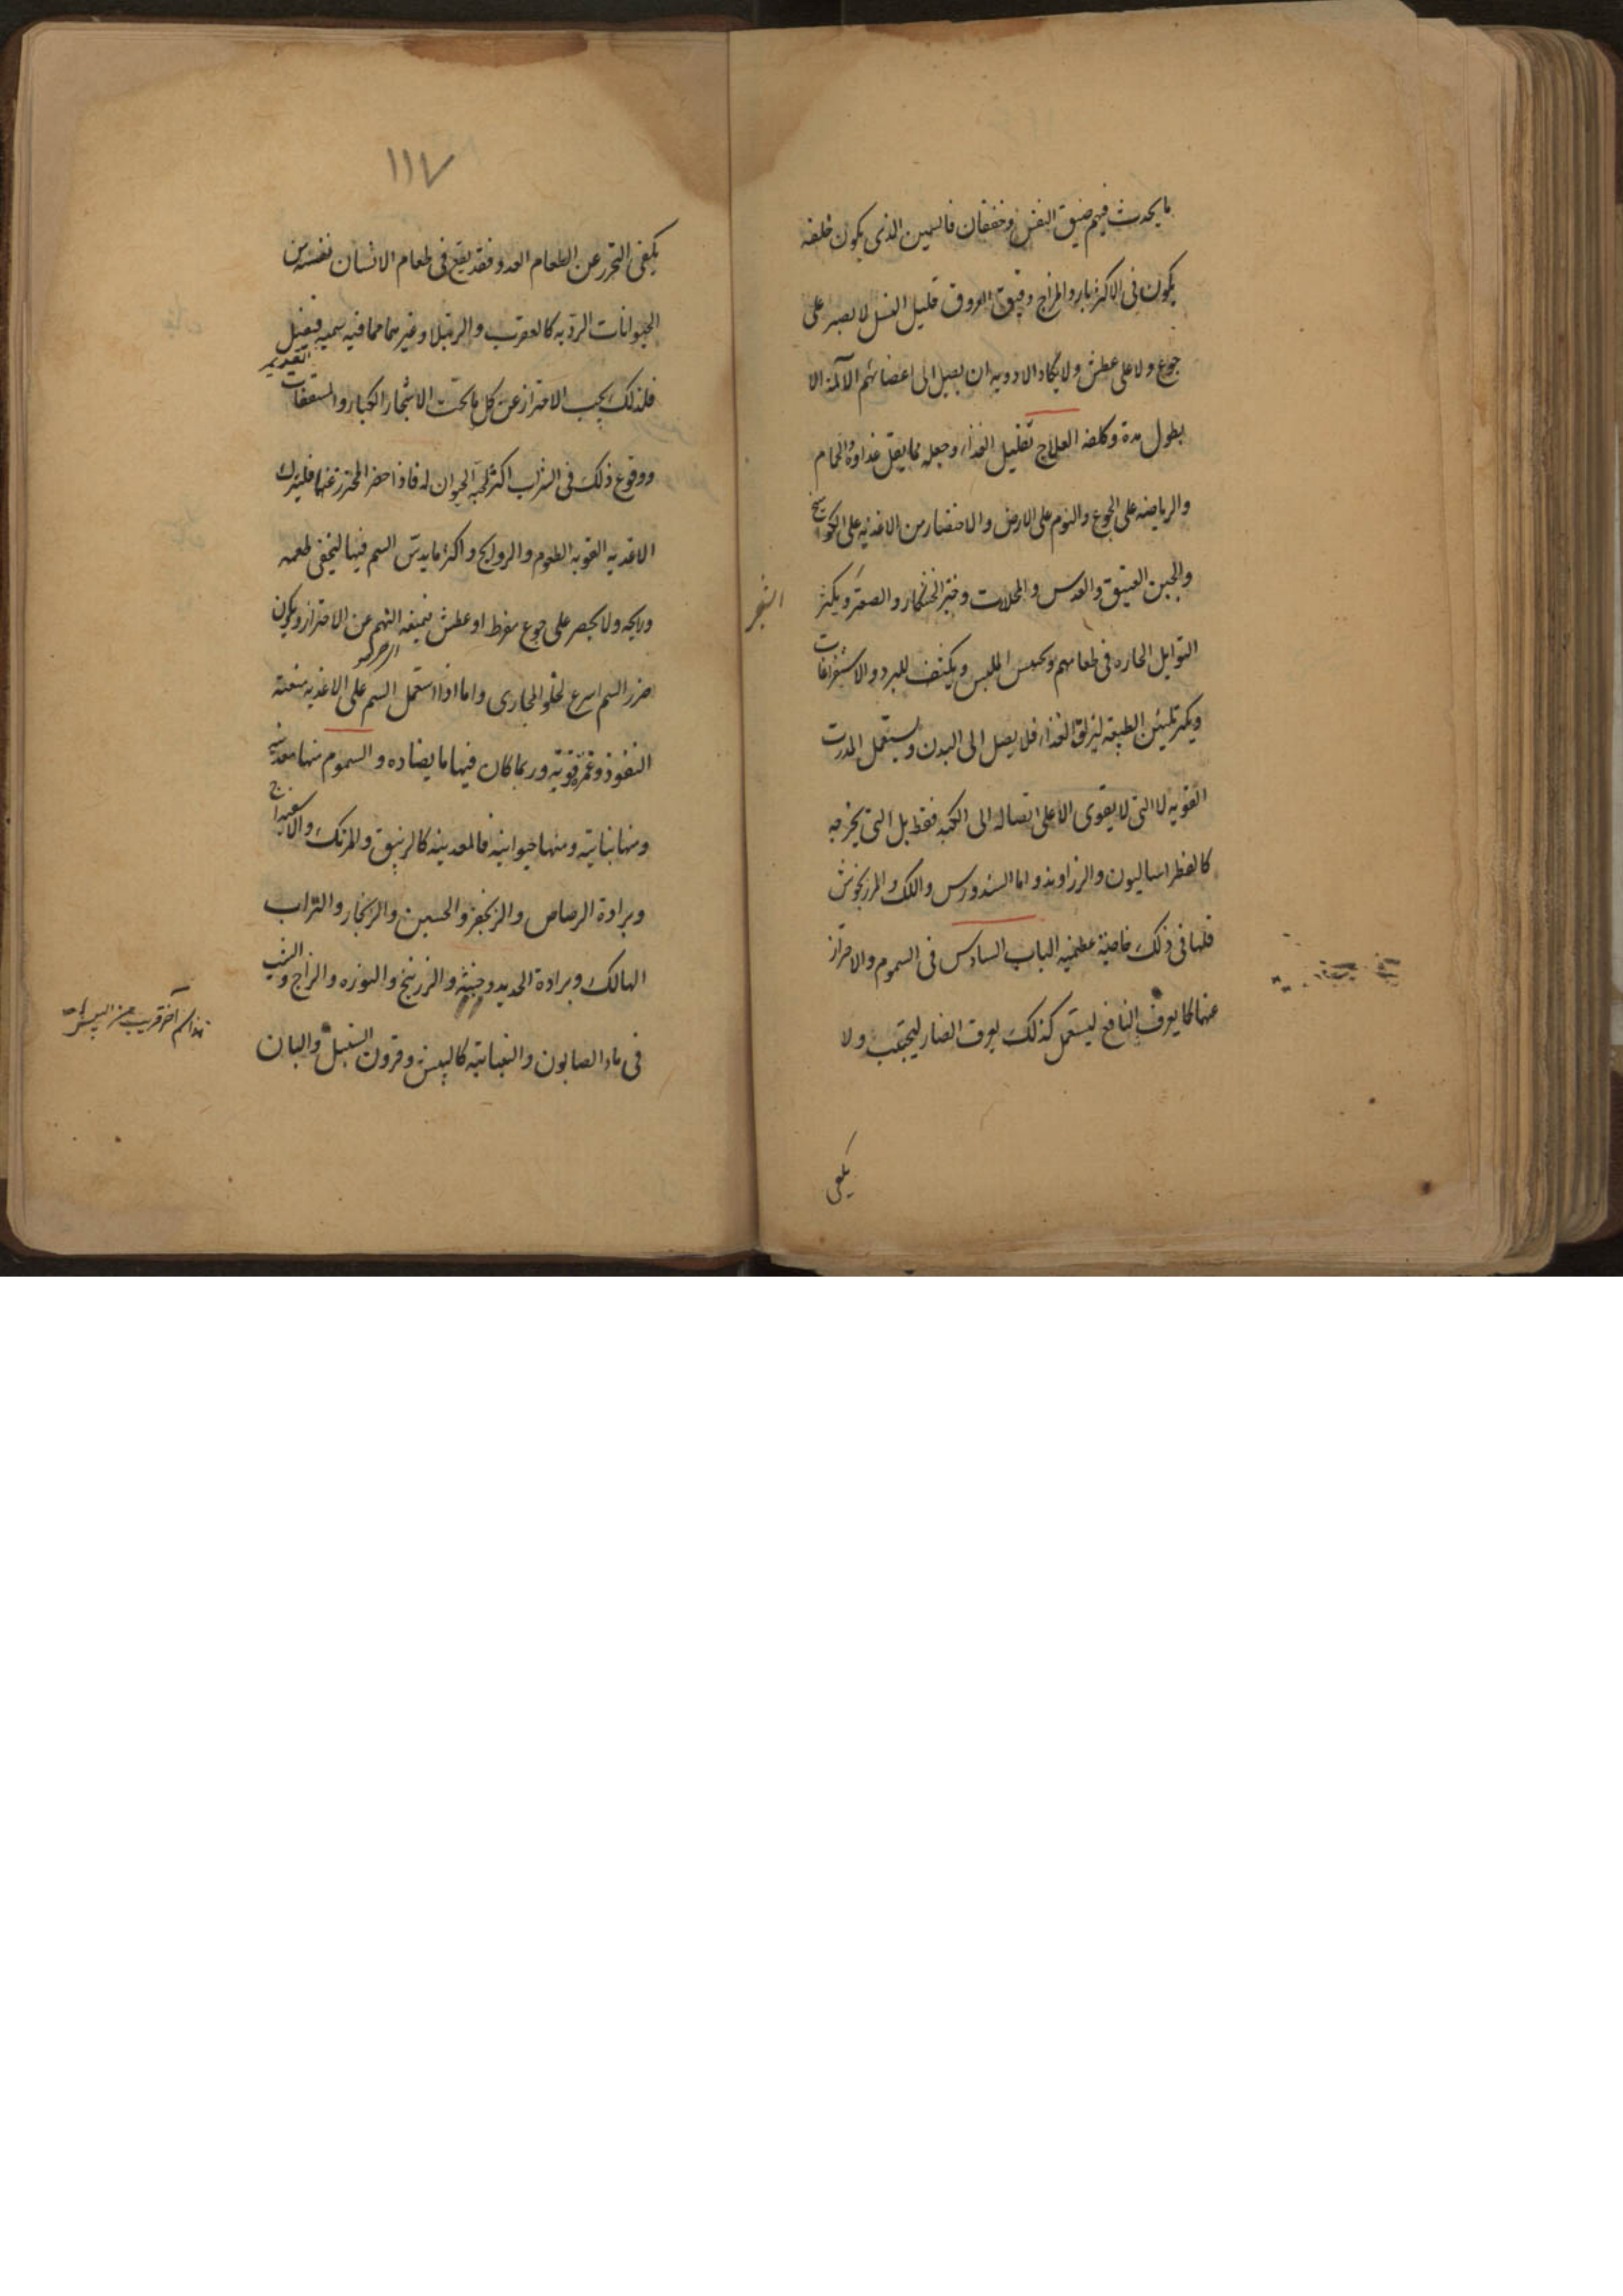 ما يحدث فيهم ضيق النفس وخفقان فالسمين الذى يكون خلقه
يكون فى الاكثر بارد المزاج دقيق العروق قليل النسل لا يصبر على
جوع ولا على عطش ولا يكاد الادويه ان يصل الى اعضائهم الآلمة الا
بطول مدة وكلفه العلاج تقليل الغذاء وجعله مما يقل غذاوه والحمام
والرياضه على الجوع والنوم على الارض والاختصار من الاغذيه على الكواميخ
والجبن العتيق والعدس والمخللات وخبز الخشكار والصعتر ويكثر
التوابل الحاره فى طعامهم ويخشن الملبس ويكشف للبرد والاستفراغات
ويكثر تليين الطبيعه ليزلق الغذاء فلا يصل الى البدن ويستعمل المدرت
القويه لا التى لا يقوى الا على ايصاله الى الكبد فقط بل التى يخرجه
كالفطراساليون والزراوند واما السندورس واللك والمرزنجوش
فلها فى ذلك خاصية عظيمه الباب السادس فى السموم والاحتراز
عنها كما يعرف النافع ليستعمل كذلك يعرف الضار ليجتنب ولا
يكفى
١١٧
يكفى التحرز عن الطعام العدو فقد يقع فى طعام الانسان نفسه من
الحيوانات الرديه كالعقرب والرتيلا وغيرهما مما فيه سميه فيقتل
فلذلك يجب الاحتراز عن كل ما تحت الاشجار الكبار والسقفات القديم
ووقوع ذلك فى الشراب اكثر لمحبة الحيوان له فاذا حضر المحترز عنها فليترك
الاغذيه القويه الطعوم والروايح واكثر ما يدس السم فيها ليخفى طعمه
وريحه ولا يحضر على جوع مفرط او عطش فيمنعه النهم عن الاحتراز ويكون
ضرر السم اسرع لخلو المجارى واما اذا استعمل السم على الاغذيه منعته
النفوذ وغمرة قويه وربما كان فيها ما يضاده والسموم منها معدنيه
ومنها نباتيه ومنها حيوانيه فالمعدنيه كالزيبق والمرتك والاسفيداج
وبرادة الرصاص والزنجفر والجبسين والزنجار والتراب
الهالك وبرادة الحديد وخبثه والزرنيخ والنوره والزاج والشب
فى ماء الصابون والنباتيه كالبيش وقرون السنبل والبان
هذا سم آخر قريب من البيش